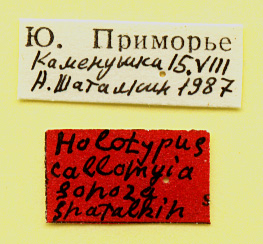 Ю. Приморье
Каменушка 15.VIII
А. Шаталкин 1987
Holotypus
callomyia
sonora
shatalkin